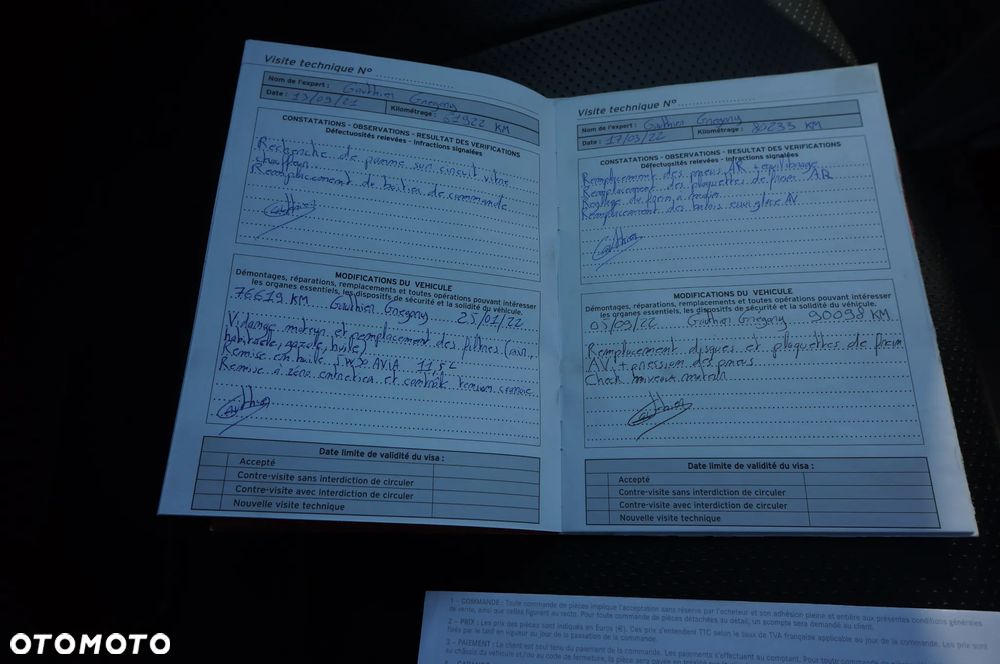 Visite technique N° ..........................
Nom de l'expert : Gauthier Gregory
Date : 13/09/21 Kilométrage : 67922 KM
CONSTATATIONS - OBSERVATIONS - RESULTAT DES VERIFICATIONS
Défectuosités relevées - Infractions signalées
Recherche de panne sur circuit vitre
chauffeur.
Remplacement de boitier de commande
Gauthier
MODIFICATIONS DU VEHICULE
Démontages, réparations, remplacements et toutes opérations pouvant intéresser
les organes essentiels, les dispositifs de sécurité et la solidité du véhicule.
76619 KM Gauthier Gregory 25/01/22
Vidange moteur et remplacement des filtres (air,
habitacle, gazole, huile)
Remise en huile 5W30 AVIA 11,5L
Remise à zéro entretien et contrôle tension
Gauthier
Date limite de validité du visa :
Accepté
Contre-visite sans interdiction de circuler
Contre-visite avec interdiction de circuler
Nouvelle visite technique
Visite technique N° ..........................
Nom de l'expert : Gauthier Gregory
Date : 17/03/22 Kilométrage : 80233 KM
CONSTATATIONS - OBSERVATIONS - RESULTAT DES VERIFICATIONS
Défectuosités relevées - Infractions signalées
Remplacement des pneus AR + équilibrage
Remplacement des plaquettes de frein AR
Réglage du frein à main
Remplacement des balais essuie glace AV
Gauthier
MODIFICATIONS DU VEHICULE
Démontages, réparations, remplacements et toutes opérations pouvant intéresser
les organes essentiels, les dispositifs de sécurité et la solidité du véhicule.
05/09/22 Gauthier Gregory 90098 KM
Remplacement disques et plaquettes de frein
AV. + pression des pneus
Check niveaux moteur
Gauthier
Date limite de validité du visa :
Accepté
Contre-visite sans interdiction de circuler
Contre-visite avec interdiction de circuler
Nouvelle visite technique
1 - COMMANDE : Toute commande de pièces implique l'acceptation sans réserve par l'acheteur et son adhésion pleine et entière aux présentes conditions générales
de vente, ainsi que celles figurant au recto. Pour toute commande de pièces détachées au détail, un acompte sera demandé au client.
2 - PRIX : Les prix des pièces sont indiqués en Euros (€). Ces prix s'entendent TTC selon le taux de TVA française applicable au jour de la commande. Les prix sont
fixés par le tarif en vigueur au jour de la passation de la commande.
3 - PAIEMENT : Le client est seul tenu du paiement de la commande. Les paiements s'effectuent au comptant. Pour toute
OTOMOTO